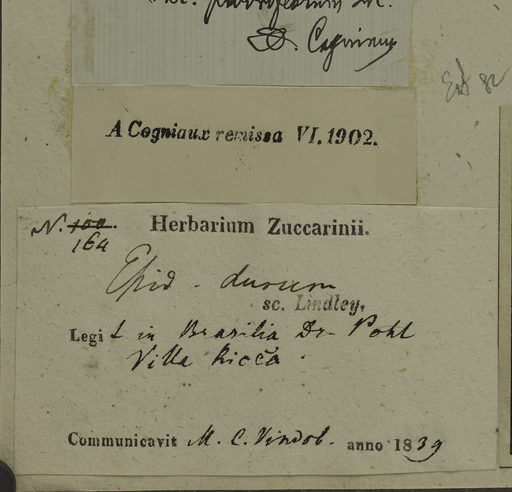 parviflorum
A. Cogniaux
A Cogniaux remissa VI. 1902.
N. 100.
164
Herbarium Zuccarinii.
Epid. durum
sc. Lindley.
Legit in Brasilia Dr. Pohl
Villa Ricca.
Communicavit M. C. Vindob. anno 1839